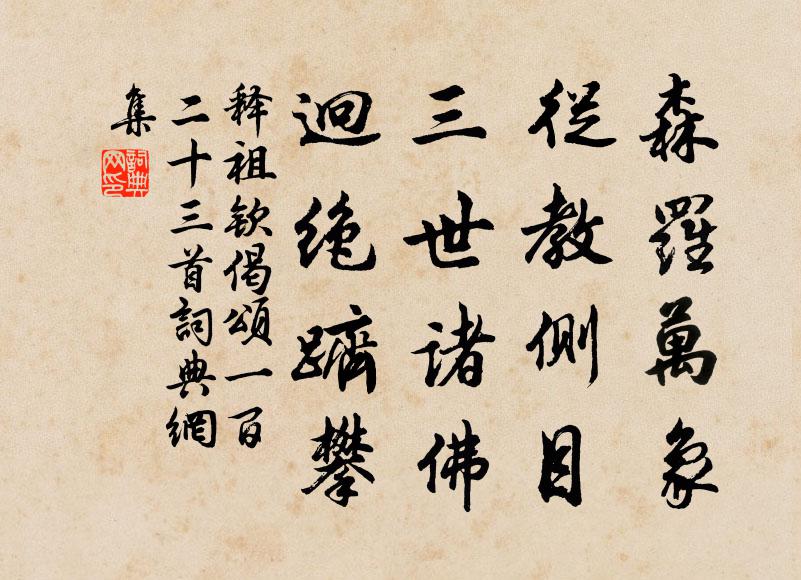 森羅萬象
從教側目
三世诸佛
迥绝躋攀
释祖钦偈頌一百
二十三首詞典網
集
詞典
网印